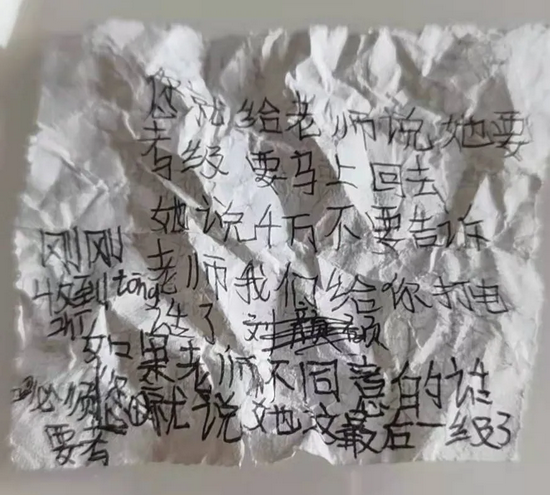 您就给老师说她要
考级 要马上回去
她说千万不要告诉
老师我们给你打电
话了
如果老师不同意的话
就说她这最后一级了
刚刚
收到tōng
必须您
要去